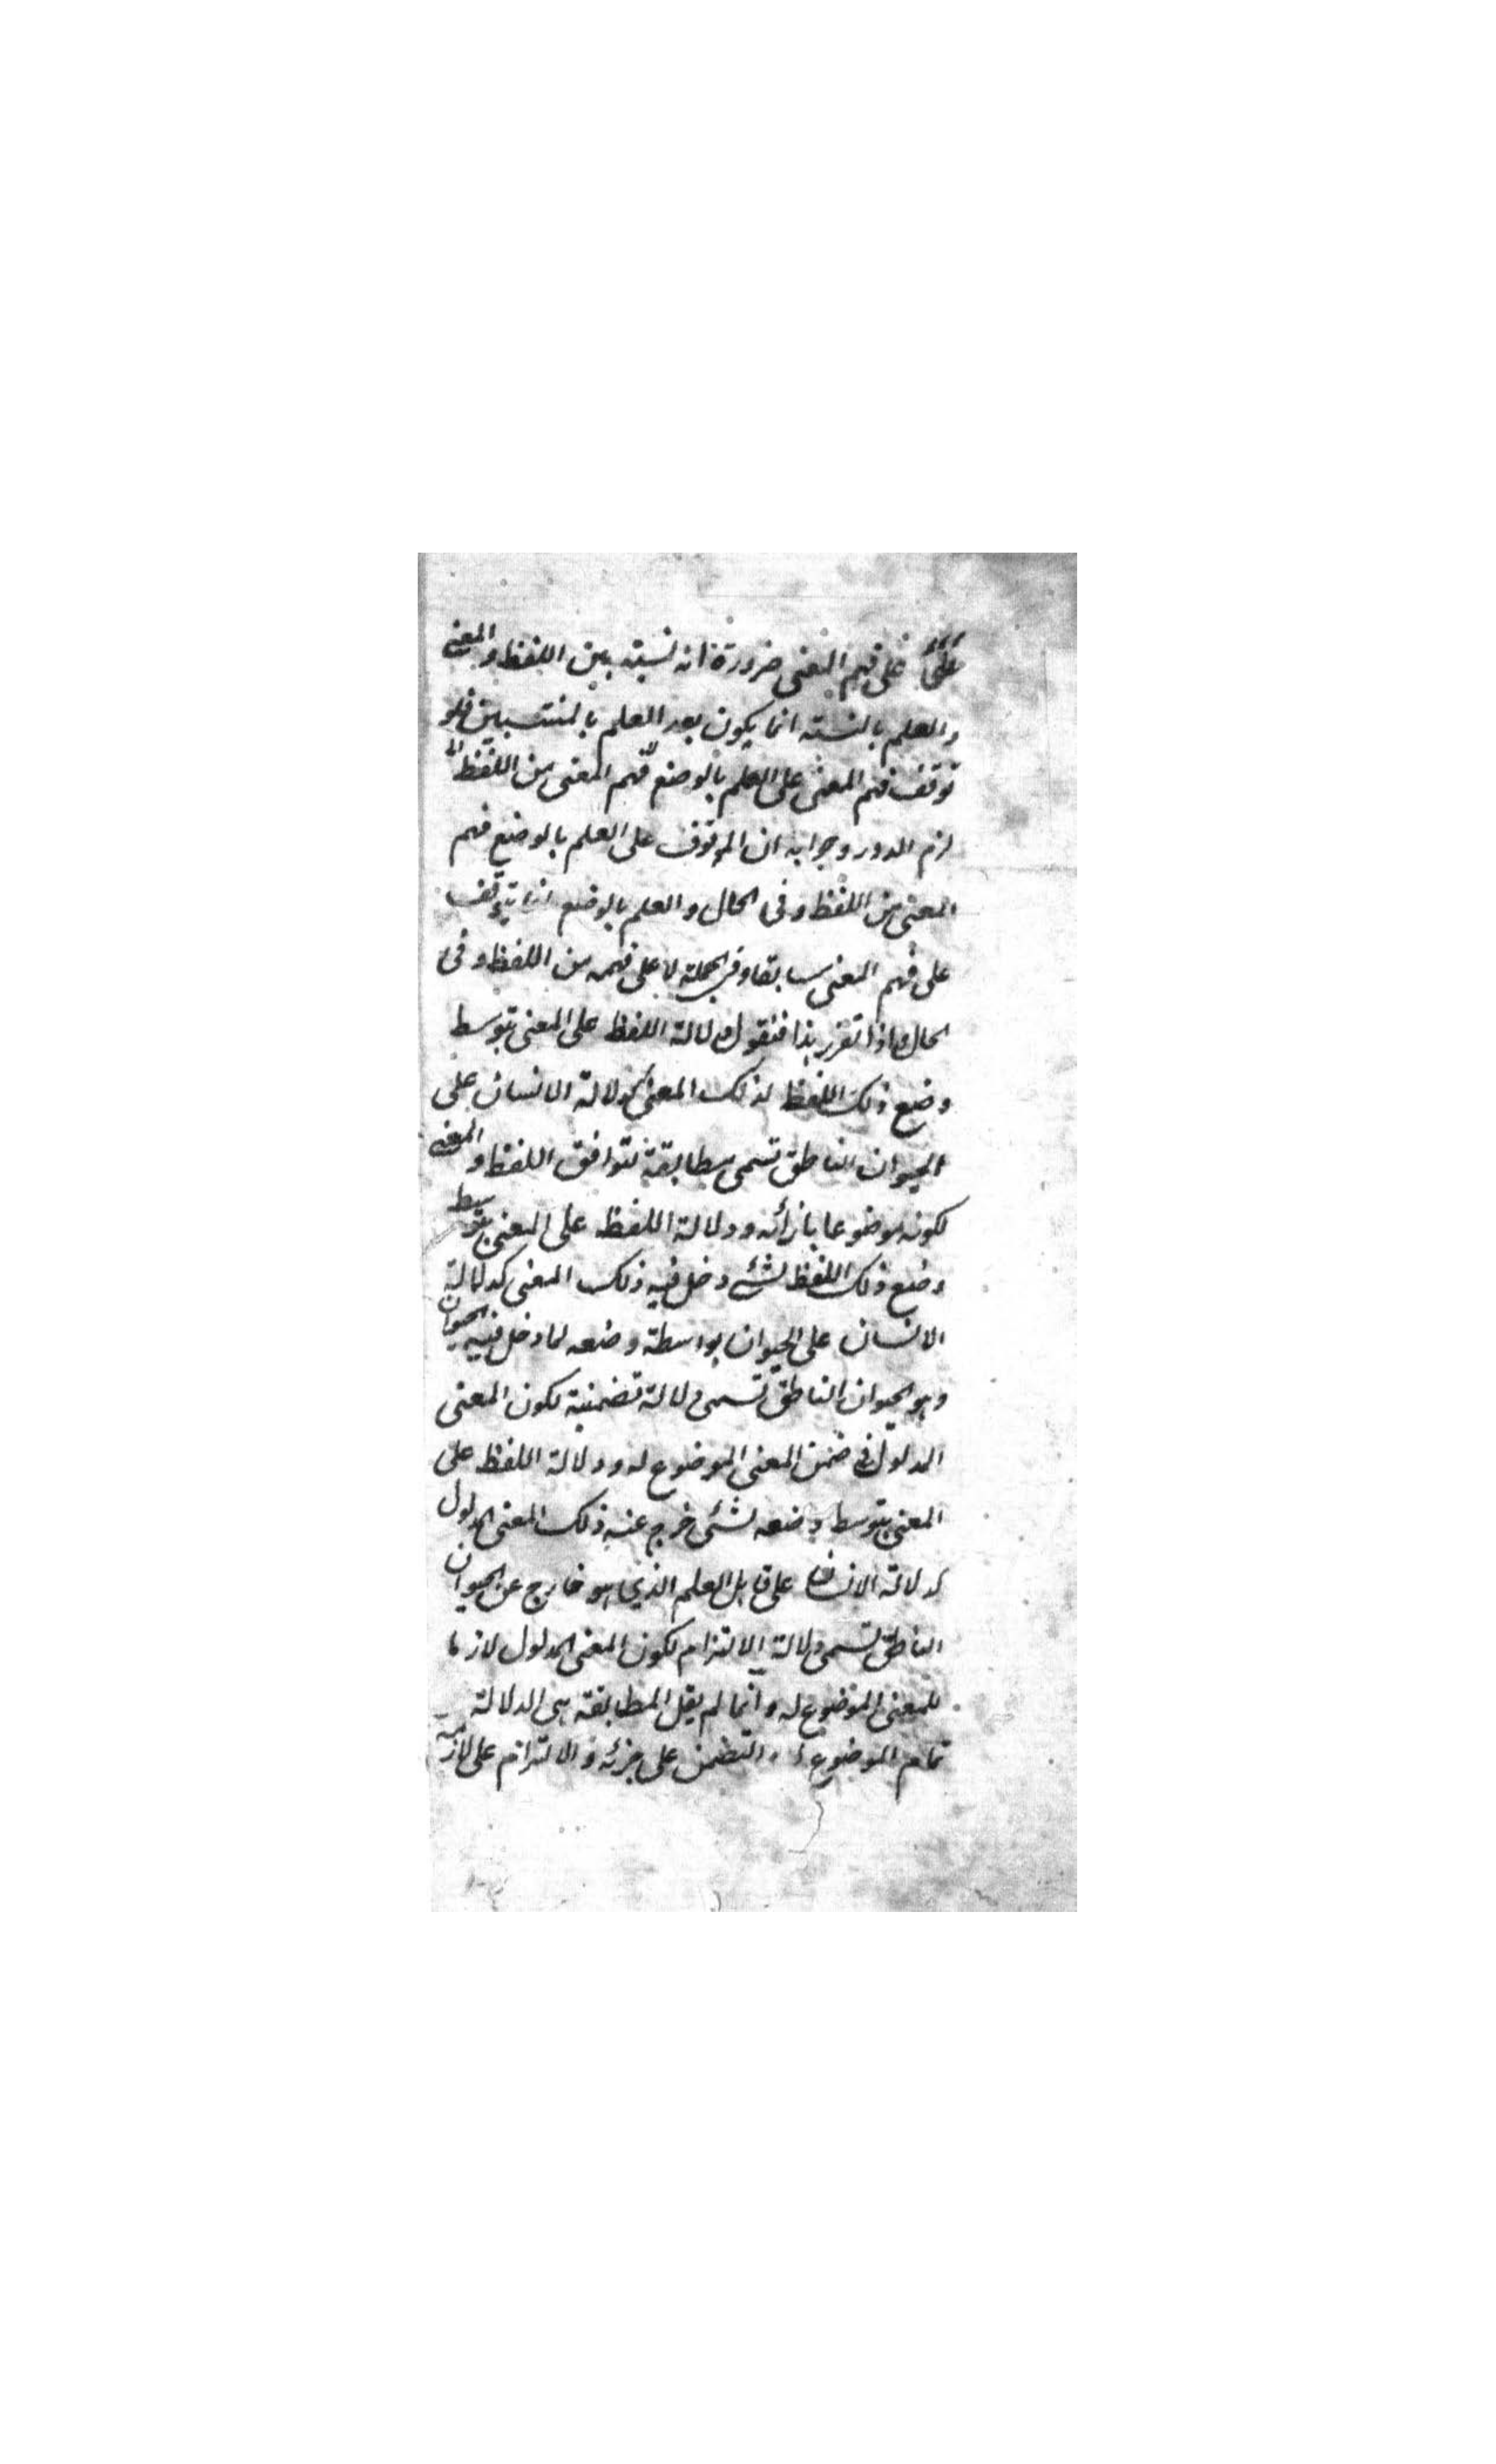 على فهم المعنى ضرورة انه نسبته بين اللفظ والمعنى
والعلم بالنسبته انما يكون بعد العلم بالمنتسبين فلو
توقف فهم المعنى على العلم بالوضع فهم المعنى من اللفظ
لزم الدور وجوابه ان الموقوف على العلم بالوضع فهم
المعنى من اللفظ وفى الحال والعلم بالوضع انما يتوقف
على فهم المعنى سابقا وفى الجملة لا على فهمه من اللفظ وفى
الحال واذا تقرر هذا فنقول دلالة اللفظ على المعنى بتوسط
وضع ذلك اللفظ لذلك المعنى كدلالة الانسان على
الحيوان الناطق تسمى مطابقة لتوافق اللفظ والمعنى
لكونه موضوعا بازائه ودلالة اللفظ على المعنى بتوسط
وضع ذلك اللفظ لشئ دخل فيه ذلك المعنى كدلالة
الانسان على الحيوان بواسطة وضعه لما دخل فيه الحيوان
وهو الحيوان الناطق تسمى دلالة تضمنية لكون المعنى
المدلول فى ضمن المعنى الموضوع له ودلالة اللفظ على
المعنى بتوسط وضعه لشئ خرج عنه ذلك المعنى المدلول
كدلالة الانسان على قابل العلم الذي هو خارج عن الحيوان
الناطق تسمى دلالة الالتزام لكون المعنى المدلول لازما
للمعنى الموضوع له وانما لم يقل المطابقة هى الدلالة
تمام الموضوع التضمن على جزئه والالتزام على لازمه